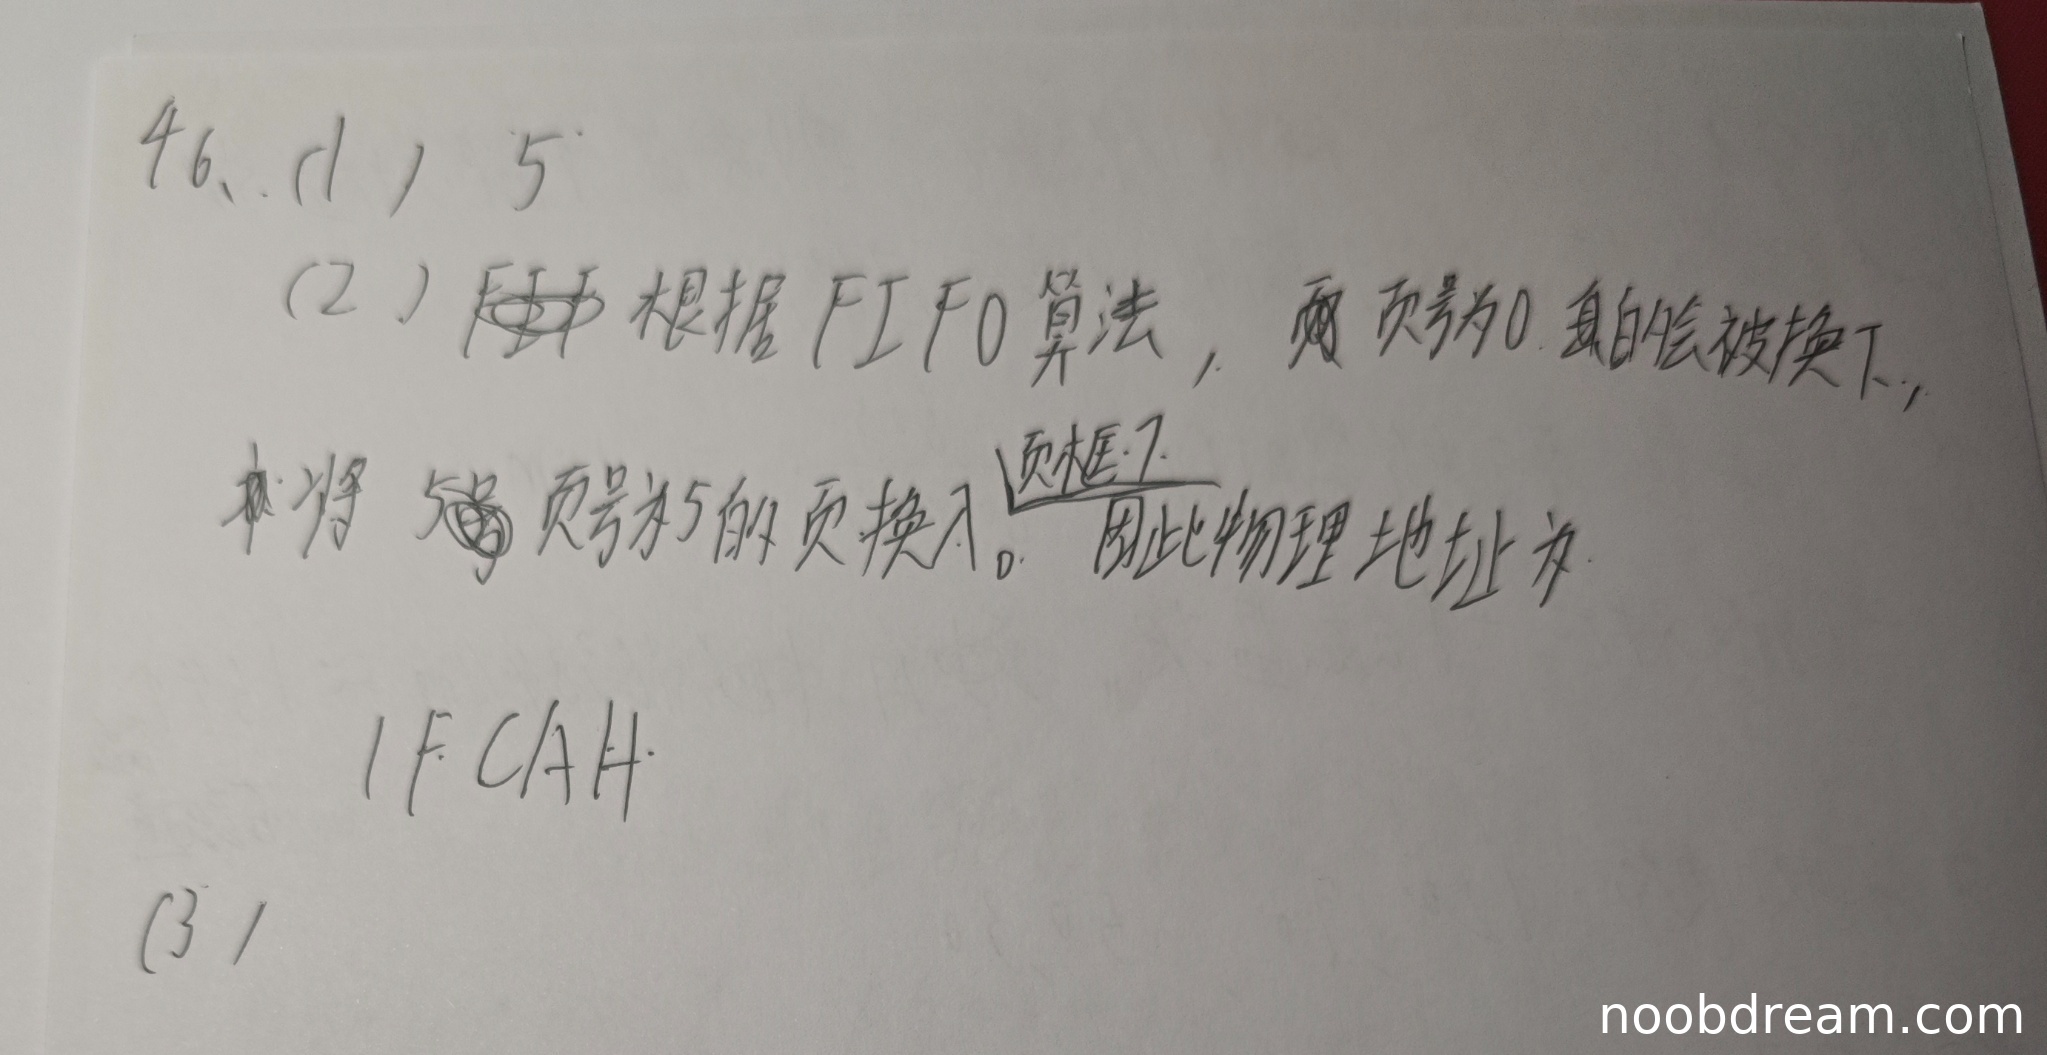 46、(1) 5
(2) 根据FIFO算法，页号为0的会被换下，
将 页号为5的页换入页框7。因此物理地址为
1FCAH
(3)
noobdream.com